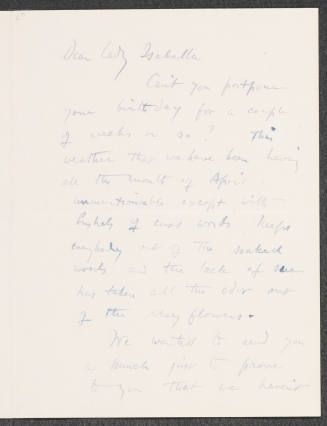 Dear Lady Isabella
Can't you postpone
your birthday for a couple
of weeks or so? This
weather that we have been having
all the month of April
unmentionable except with
bushels of cuss words keeps
everybody out of the
woods and the lack of sun
has taken all the odor out
of the may flowers.
We wanted to send you
a bunch just to prove
to you that we haven't